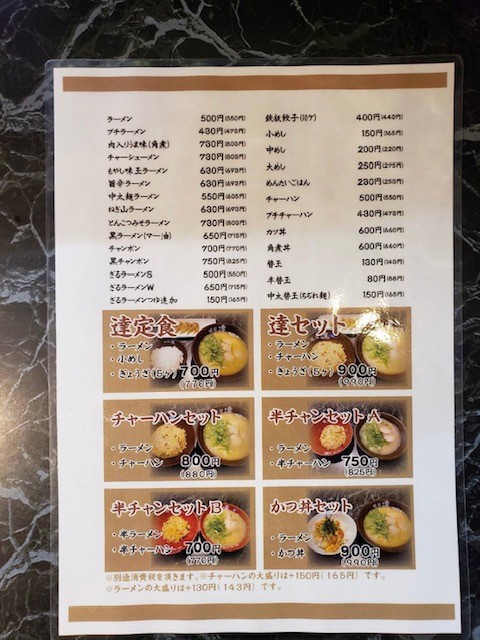 ラーメン 500円(550円)
プチラーメン 430円(473円)
肉入りうま味(角煮) 730円(803円)
チャーシューメン 730円(803円)
もやし味玉ラーメン 630円(693円)
旨辛ラーメン 630円(693円)
中太麺ラーメン 550円(605円)
ねぎ山ラーメン 630円(693円)
とんこつみそラーメン 730円(803円)
黒ラーメン(マー油) 650円(715円)
チャンポン 700円(770円)
黒チャンポン 750円(825円)
ざるラーメンS 500円(550円)
ざるラーメンW 650円(715円)
ざるラーメンつゆ追加 150円(165円)
鉄板餃子(10ケ) 400円(440円)
小めし 150円(165円)
中めし 200円(220円)
大めし 250円(275円)
めんたいごはん 230円(253円)
チャーハン 500円(550円)
プチチャーハン 430円(473円)
カツ丼 600円(660円)
角煮丼 600円(660円)
替玉 130円(143円)
半替玉 80円(88円)
中太替玉(ちぢれ麺) 150円(165円)
達定食
・ラーメン
・小めし
・ぎょうざ(5ヶ) 700円
(770円)
達セット
・ラーメン
・チャーハン
・ぎょうざ(5ヶ) 900円
(990円)
チャーハンセット
・ラーメン
・チャーハン 800円
(880円)
半チャンセットA
・ラーメン
・半チャーハン 750円
(825円)
半チャンセットB
・半ラーメン
・半チャーハン 700円
(770円)
かつ丼セット
・ラーメン
・かつ丼 900円
(990円)
※別途消費税を頂きます。※チャーハンの大盛りは+150円(165円)です。
※ラーメンの大盛りは+130円(143円)です。